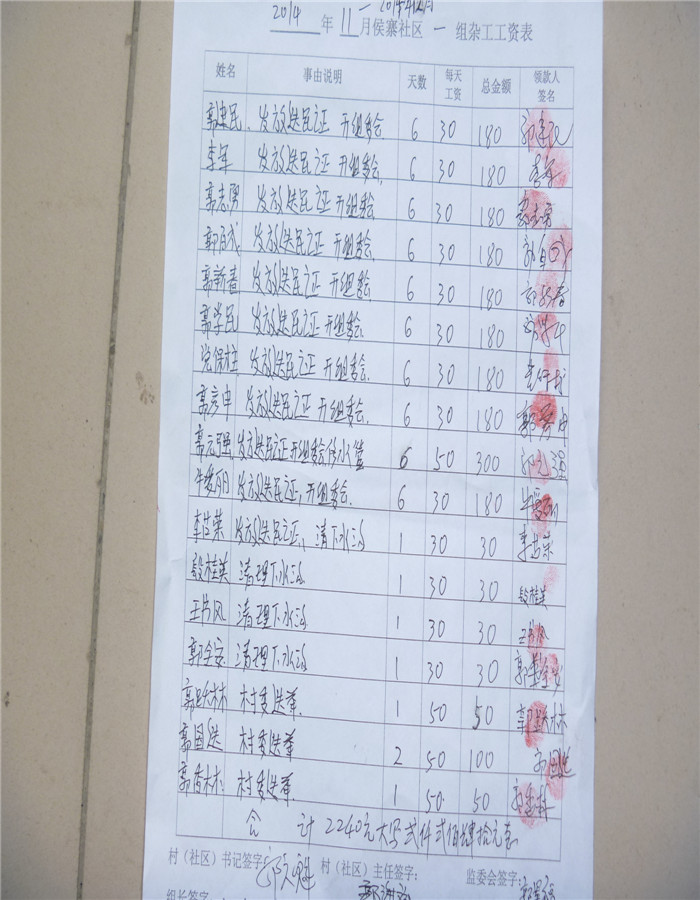 2014 年 11 月侯寨社区 一 组杂工工资表
姓名 事由说明 天数 每天工资 总金额 领款人签名
郭建民 发放选民证 开组委会 6 30 180 郭建民
李军 发放选民证 开组委会 6 30 180 李军
郭志勇 发放选民证 开组委会 6 30 180 郭志勇
郭自成 发放选民证 开组委会 6 30 180
郭新春 发放选民证 开组委会 6 30 180 郭新春
郭学民 发放选民证 开组委会 6 30 180
党保柱 发放选民证 开组委会 6 30 180
郭彦中 发放选民证 开组委会 6 30 180 郭彦中
郭元强 发放选民证 开组委会修水管 6 50 300 郭元强
牛爱丽 发放选民证, 开组委会 6 30 180
李苗荣 发放选民证, 清下水沟 1 30 30 李苗荣
段桂英 清理下水沟 1 30 30 段桂英
王书风 清理下水沟 1 30 30 王书风
郭全家 清理下水沟 1 30 30
郭跃林 村委选举 1 50 50 郭跃林
郭国选 村委选举 2 50 100 郭国选
郭香林 村委选举 1 50 50 郭香林
合 计 2240元 大写 贰仟贰佰肆拾元整
村（社区）书记签字: 村（社区）主任签字: 监委会签字:
组长签字